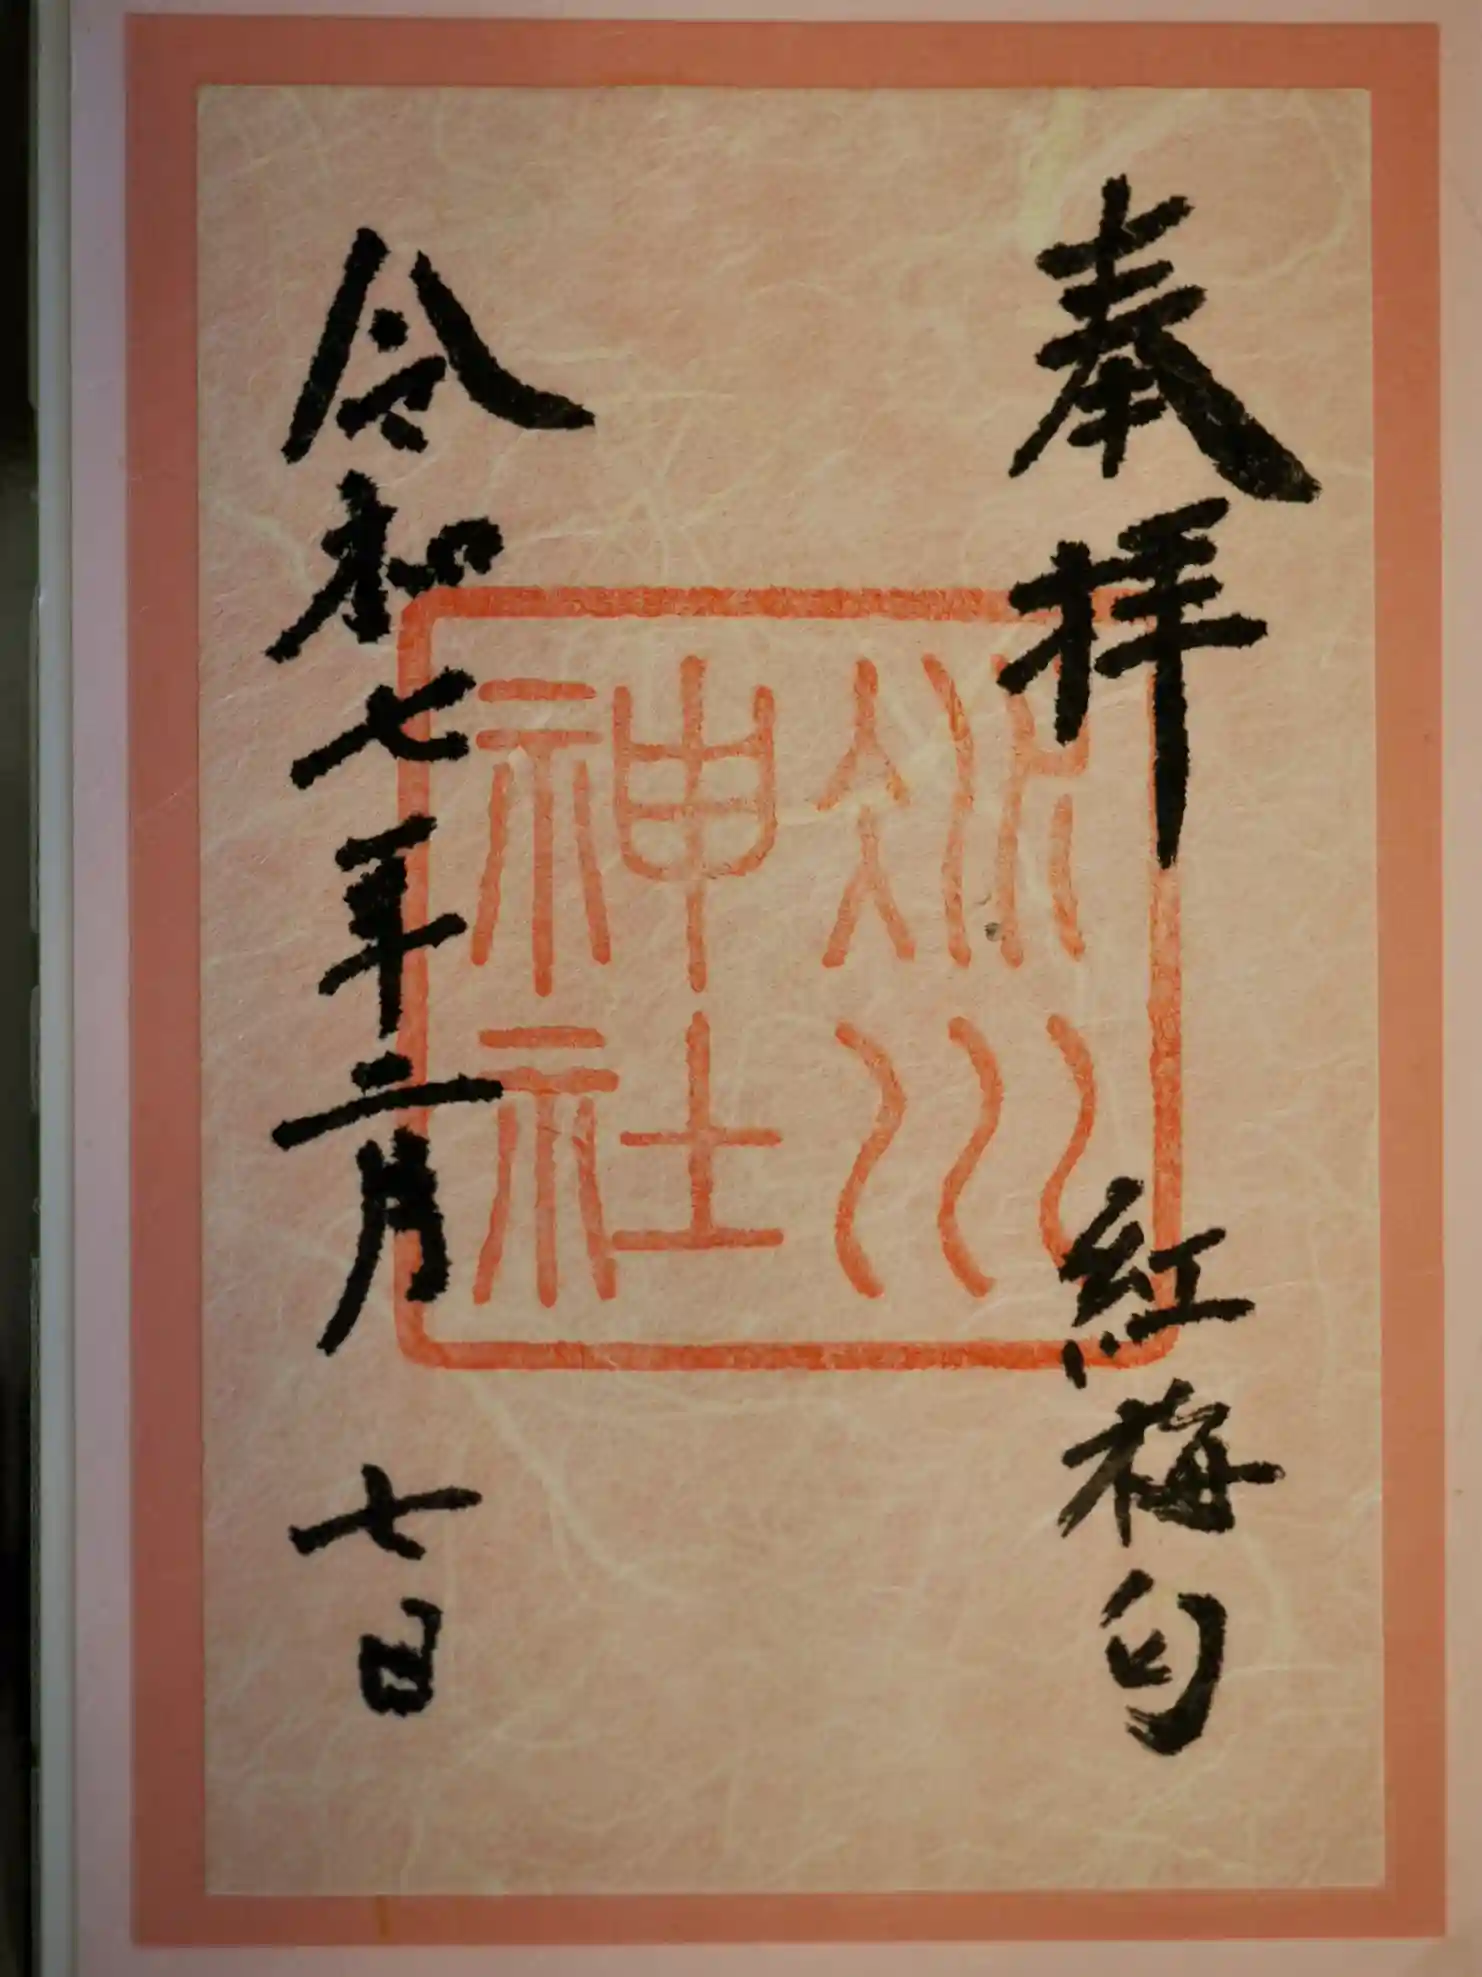 奉拝　紅梅匂
氷川
神社
令和七年二月　七日